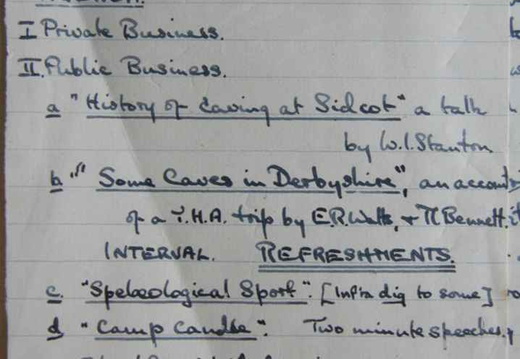 I Private Business.
II Public Business.
a "History of Caving at Sidcot" a talk
by W.I. Stanton
b "Some Caves in Derbyshire", an account
of a Y.H.A. trip by E.R. Watts, + Bennett.
INTERVAL. REFRESHMENTS.
c. "Spelæological Sport". [Infra dig to some]
d "Camp Candle". Two minute speeches.